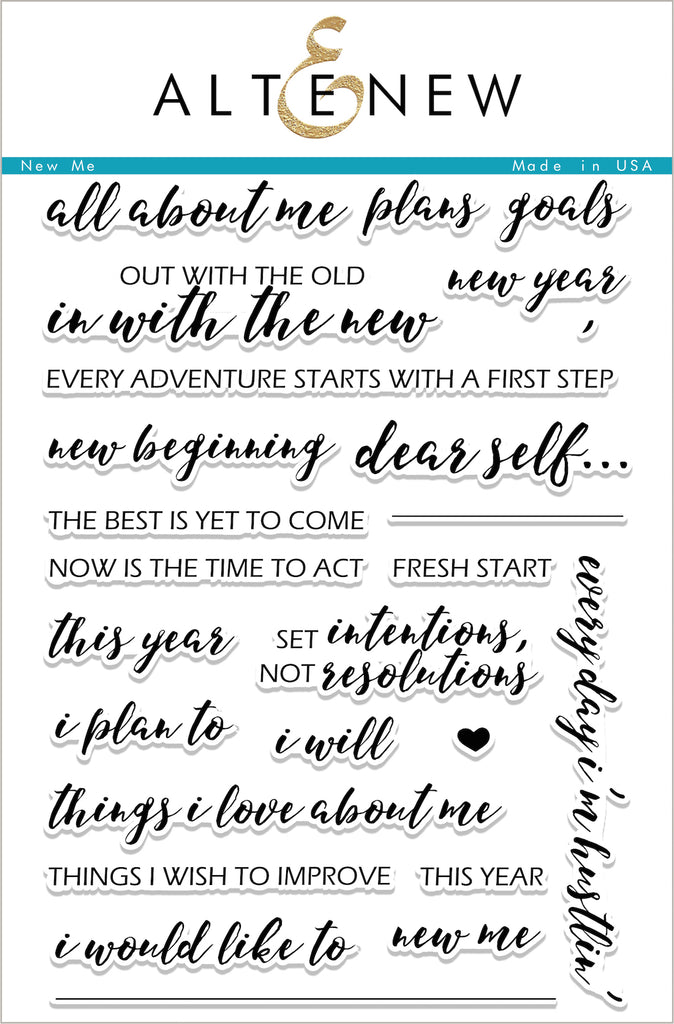 ALTENEW
New Me Made in USA
all about me plans goals
OUT WITH THE OLD
new year,
in with the new
EVERY ADVENTURE STARTS WITH A FIRST STEP
new beginning dear self...
THE BEST IS YET TO COME
NOW IS THE TIME TO ACT FRESH START
this year
SET intentions,
NOT resolutions
i plan to
i will
things i love about me
THINGS I WISH TO IMPROVE THIS YEAR
i would like to new me
everyday i'm hustlin'